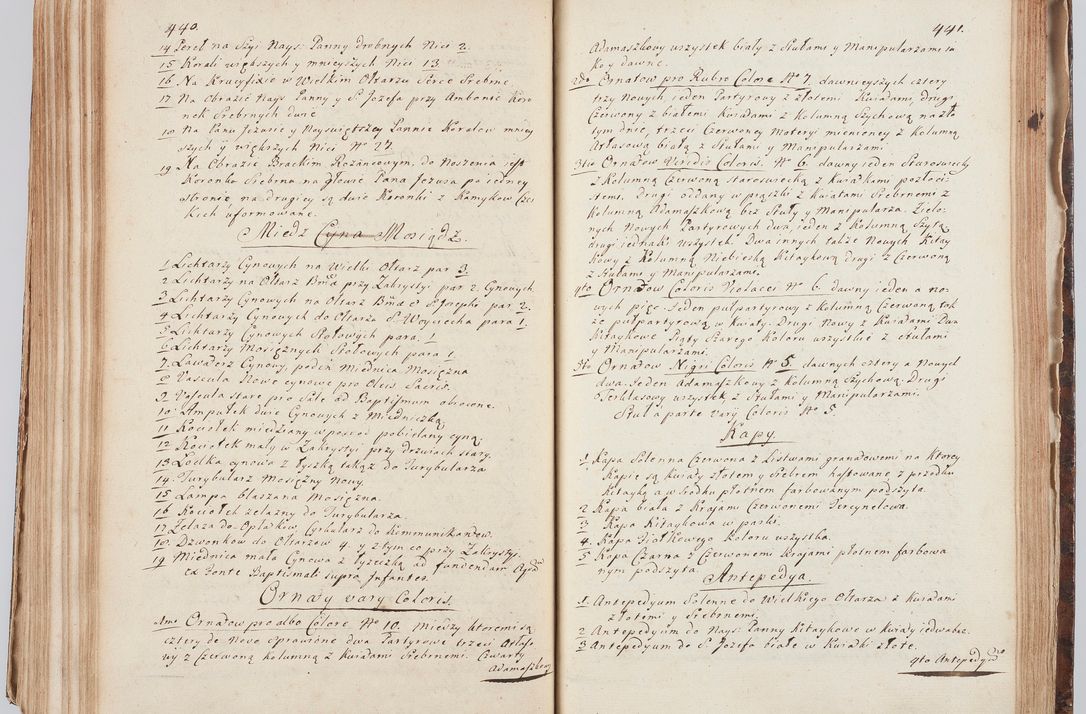 440.
14 Pereł na Szyi Nays: Panny drobnych Nici 2.
15 Korali większych y mnieyszych Nici 13
16. Na Krucyfixie w Wielkim Ołtarzu Serce Srebrne
17 Na Obrazie Nays Panny y S. Jozefa przy Ambonie Koro
nek Srebrnych dwie
18 Na Panu Jezusie y Nayswiętszey Pannie Koralow mniey
szych y większych Nici N° 27
19 Na Obrazie Brackim Rożańcowym, do Noszenia jest
Koronka Srebrna na głowie Pana Jezusa po jedney
stronie na drugiey są dwie Koronki z Kamykow Czes
kich uformowane.
Miedz Cyna Mosiądz.
1 Lichtarzy Cynowych na Wielki Ołtarz par 3.
2 Lichtarzy na Ołtarz przy Zakrystyi par 2. Cynowych
3 Lichtarzy Cynowych na Ołtarz S Josephi par 2.
4 Lichtarzy Cynowych do Ołtarza S. Woyciecha para 1.
5 Lichtarzy Cynowych Stołowych para 1
6 Lichtarzy Mosiężnych Stołowych para 1
7. Lawaterz Cynowy, podeń Miednica Mosiężna
8 Vascula Nowe cynowe pro Oleis Sacris.
9 Vascula stare pro Sale ad Baptismum obrocone.
10 Ampułek dwie Cynowych z Miedniczką.
11 Kociołek miedziany wposrod pobielany cyną.
12 Kociołek mały w Zakrystyi przy drzwiach stary.
13 Łodka cynowa z łyszką takąż do Turybularza
14. Turybularz Mosiężny Nowy
15 Lampa blaszana Mosiężna.
16 Kociołek żelazny do Turybularza.
17 Żelaza do Opłatkow, Cyrkularz do Kommunikantow.
18. Dzwonkow do Ołtarzow 4 y z tym co przy Zakrystyi
19 Miednica mała Cynowa z łyżeczką ad fundendam Aquam
ex fonte Baptismali supra Infantes.
Ornaty vary Coloris.
1mo Ornatow pro albo Colore N° 10. Między ktoremi są
cztery de Novo sprawione dwa Partyrowe trzeci Atłaso
wy z Czerwoną kolumną z kwiatami Srebrnemi. Czwarty
Adamaszkowy
441.
Adamaszkowy wszystek biały z Stułami y Manipularzami ja
ko y dawne.
2do Ornatow pro Rubro Colore N° 7 dawnieyszych cztery
trzy Nowych, jeden Partyrowy z złotemi Kwiatami, drugi
Czerwony z białemi Kwiatami z kolumną Szychową na zło
tym dnie, trzeci Czerwoney Materyi mienioney z kolumną
Atłasową białą z Stułami y Manipularzami
3tio Ornatow Viridis Coloris. N° 6. dawny jeden Staroswiecki
z Kolumną Czerwoną staroswiecką z Kwiatkami pozłoci
stemi. Drugi oddany w prążki z Kwiatami Srebrnemi z
Kolumną Adamaszkową bez Stuły y Manipularza. Zielo
nych Nowych Partyrowych dwa, jeden z Kolumną Szytą
drugi jednaki wszystek. Dwa innych także Nowych Kitay
kowy z Kolumną Niebieską Kitaykową drugi z Czerwoną
z Stułami y Manipularzami.
4to Ornatow Coloris Violacei N° 6. dawny jeden a no
wych pięc. Jeden pulpartyrowy z Kolumną Czerwoną tak
że pułpartyrową w kwiaty. Drugi Nowy z Kwiatami Dwa
Kitaykowe Piąty Szarego Koloru wszystkie z Stułami
y Manipularzami.
5to Ornatow Nigri Coloris N° 5. dawnych cztery a Nowych
dwa. Jeden Adamaszkowy z Kolumną Szychową. Drugi
wszystek z Stułami y Manipularzami.
Stuła parte vary Coloris N° 5.
Kapy
1 Kapa Solenna Czerwona z Listwami granadowemi na ktorey
Kapie są kwiaty złotem y Srebrem haftowane z przodku
Kitayką a w srodku płotnem farbowanym podszyta.
2 Kapa biała z Krajami Czerwonemi Tercynelowa.
3 Kapa Kitaykowa w paski.
4. Kapa Fiołkowego Koloru wszystka.
5 Kapa Czarna z Czerwonemi Krajami płotnem farbowa
nym podszyta.
Antepedya.
1. Antepedyum Solenne do Wielkiego Ołtarza z Kwiatami
złotemi y Srebrnemi.
2 Antepedyum do Nays: Panny Kitaykowe w kwiaty jedwabne.
3 Antepedyum do S. Jozefa białe w Kwiatki złote.
4to Antepedyum